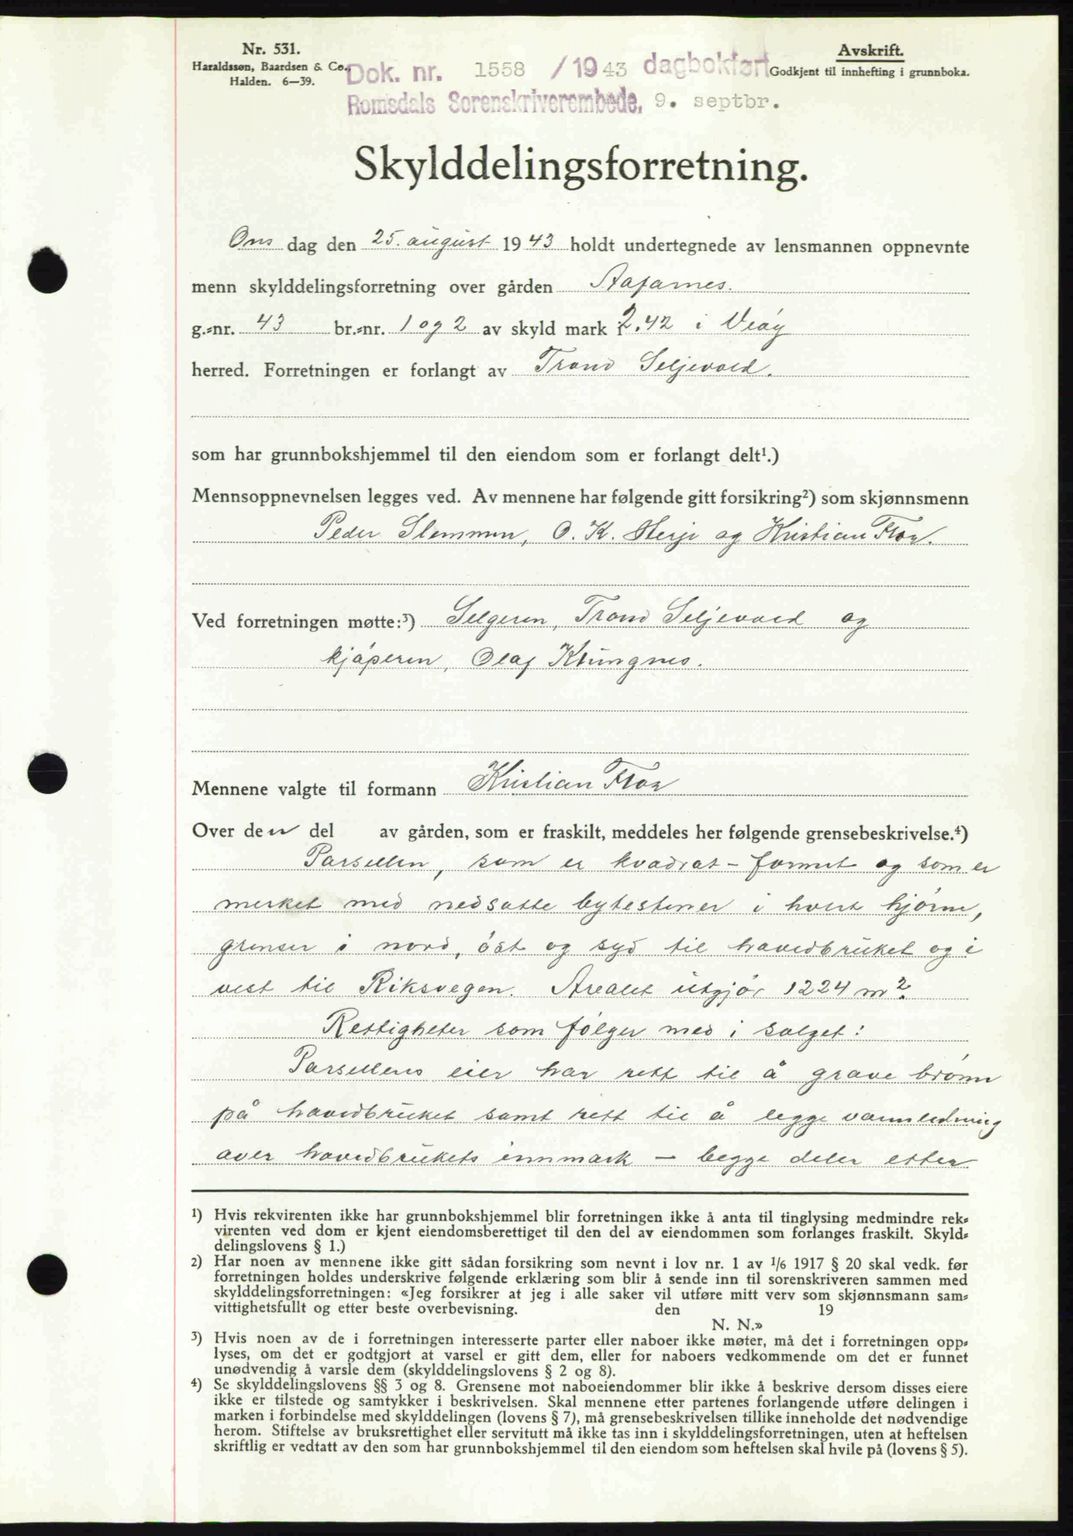 Nr. 531.
Haraldssøn, Baardsen & Co.
Halden. 6—39.
Dok. nr. 1558 / 1943 dagbokført
Romsdals Sorenskriverembede, 9. septbr.
Avskrift.
Godkjent til innhefting i grunnboka.
Skylddelingsforretning.
Ons dag den 25. august 1943 holdt undertegnede av lensmannen oppnevnte
menn skylddelingsforretning over gården
g.-nr. 43 br.-nr. 1 og 2 av skyld mark 2.42 i Veøy
herred. Forretningen er forlangt av Trond Seljevold.
som har grunnbokshjemmel til den eiendom som er forlangt delt¹.)
Mennsoppnevnelsen legges ved. Av mennene har følgende gitt forsikring²) som skjønnsmenn
Peder Slemmen, O. K. og Kristian Flor.
Ved forretningen møtte:³) Selgeren, Trond Seljevold og
kjøperen, Olaf Klungnes.
Mennene valgte til formann Kristian Flor
Over den del av gården, som er fraskilt, meddeles her følgende grensebeskrivelse.⁴)
Parsellen, som er kvadrat-formet og som er
merket med nedsatte bytestener i hvert hjørne,
grenser i nord, øst og syd til hovedbruket og i
vest til Riksvegen. Arealet utgjør 1224 m².
Rettigheter som følger med i salget:
Parsellens eier har rett til å grave brønn
på hovedbruket samt rett til å legge vannledning
over hovedbrukets innmark — begge deler etter
¹) Hvis rekvirenten ikke har grunnbokshjemmel blir forretningen ikke å anta til tinglysing medmindre rek-
virenten ved dom er kjent eiendomsberettiget til den del av eiendommen som forlanges fraskilt. Skyld-
delingslovens § 1.)
²) Har noen av mennene ikke gitt sådan forsikring som nevnt i lov nr. 1 av ¹/₆ 1917 § 20 skal vedk. før
forretningen holdes underskrive følgende erklæring som blir å sende inn til sorenskriveren sammen med
skylddelingsforretningen: «Jeg forsikrer at jeg i alle saker vil utføre mitt verv som skjønnsmann sam-
vittighetsfullt og etter beste overbevisning. den 19
N. N.»
³) Hvis noen av de i forretningen interesserte parter eller naboer ikke møter, må det i forretningen opp-
lyses, om det er godtgjort at varsel er gitt dem, eller for naboers vedkommende om det er funnet
unødvendig å varsle dem (skylddelingslovens § 2 og 8).
⁴) Se skylddelingslovens §§ 3 og 8. Grensene mot naboeiendommer blir ikke å beskrive dersom disses eiere
ikke er tilstede og samtykker i beskrivelsen. Skal mennene etter partenes forlangende utføre delingen i
marken i forbindelse med skylddelingen (lovens § 7), må grensebeskrivelsen tillike inneholde det nødvendige
herom. Stiftelse av bruksrettighet eller servitutt må ikke tas inn i skylddelingsforretningen, uten at heftelsen
skriftlig er vedtatt av den som har grunnbokshjemmel til den eiendom som heftelsen skal hvile på (lovens § 5).